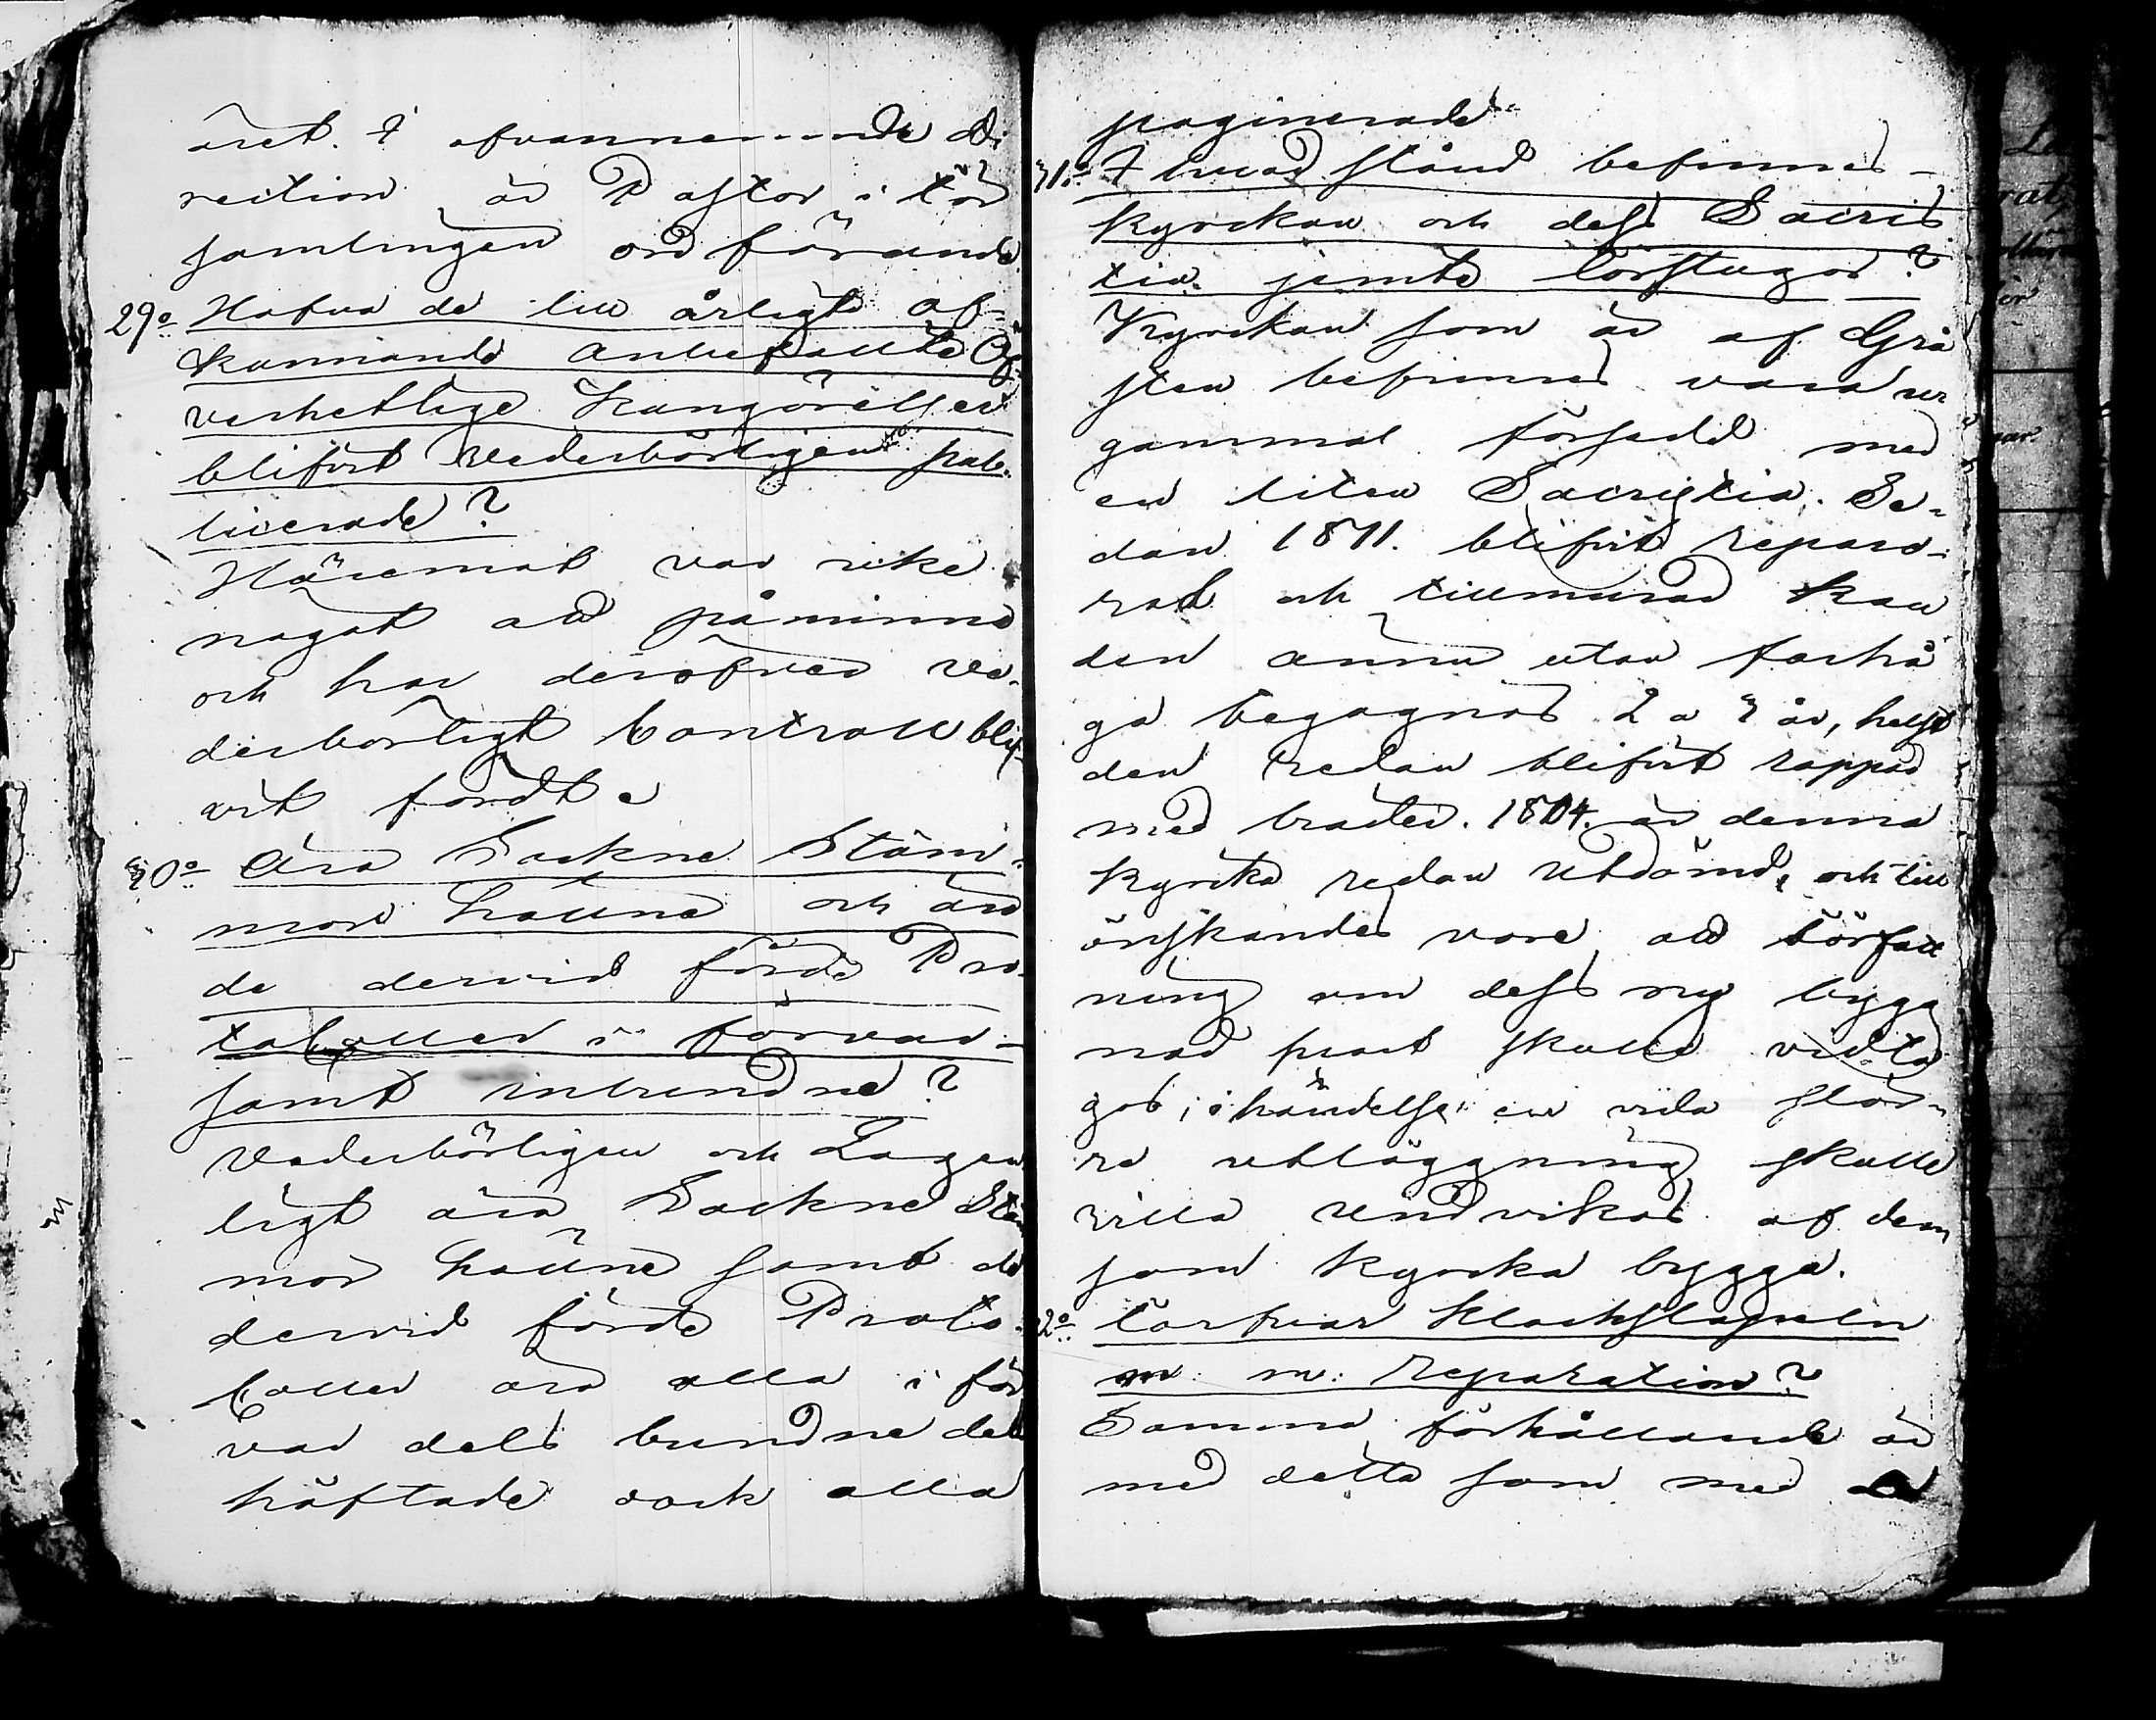 året. I ofvannemnde Di
rection är Pastor i för
samlingen ordförande.
29o Hafva de till årligt af-
kunnande anbefallte Öf
verhetlige Kungörelser
blifvit vederbörligen pub-
licerade?
Häremot var icke
något att påminna
och har deröfver ve-
derbörligt Controll blif-
vit fördt.
30o Ära Sockne Stäm-
mor hållne och äro
de dervid förde Pro-
tocoller i förvar
samt inbundne?
Vederbörligen och Lagen
ligt ära Sockne Stäm
mor hållne samt de
dervid förde Proto-
coller ära alla i för
var dels bundne dels
häftade och alla
paginerade.
31o I hvad stånd befinnes
Kyrckan och dess Sacris
tia jemte förstugor?
Kyrckan som är af Grå
sten befinnes vara ur
gammal försedd med
en liten Sacristia. Se-
dan 1811. blifvit repare-
rad och tillmurad kan
den ännu utan farhå
ga begagnas 2 a 3 år, helst
den redan blifvit rappad
med bräder. 1804. är denna
Kyrcka redan utdömd, och till
önskandes vore att författ
ning om dess ny bygg
nad snart skulle vidta
gas, i händelse en vida stör-
re utläggning skulle
villa undvikas af dem
som Kyrcka bygga.
32o Tarfvar Klockstapeln
m. m. reparation?
Samma förhållande är
med detta som med